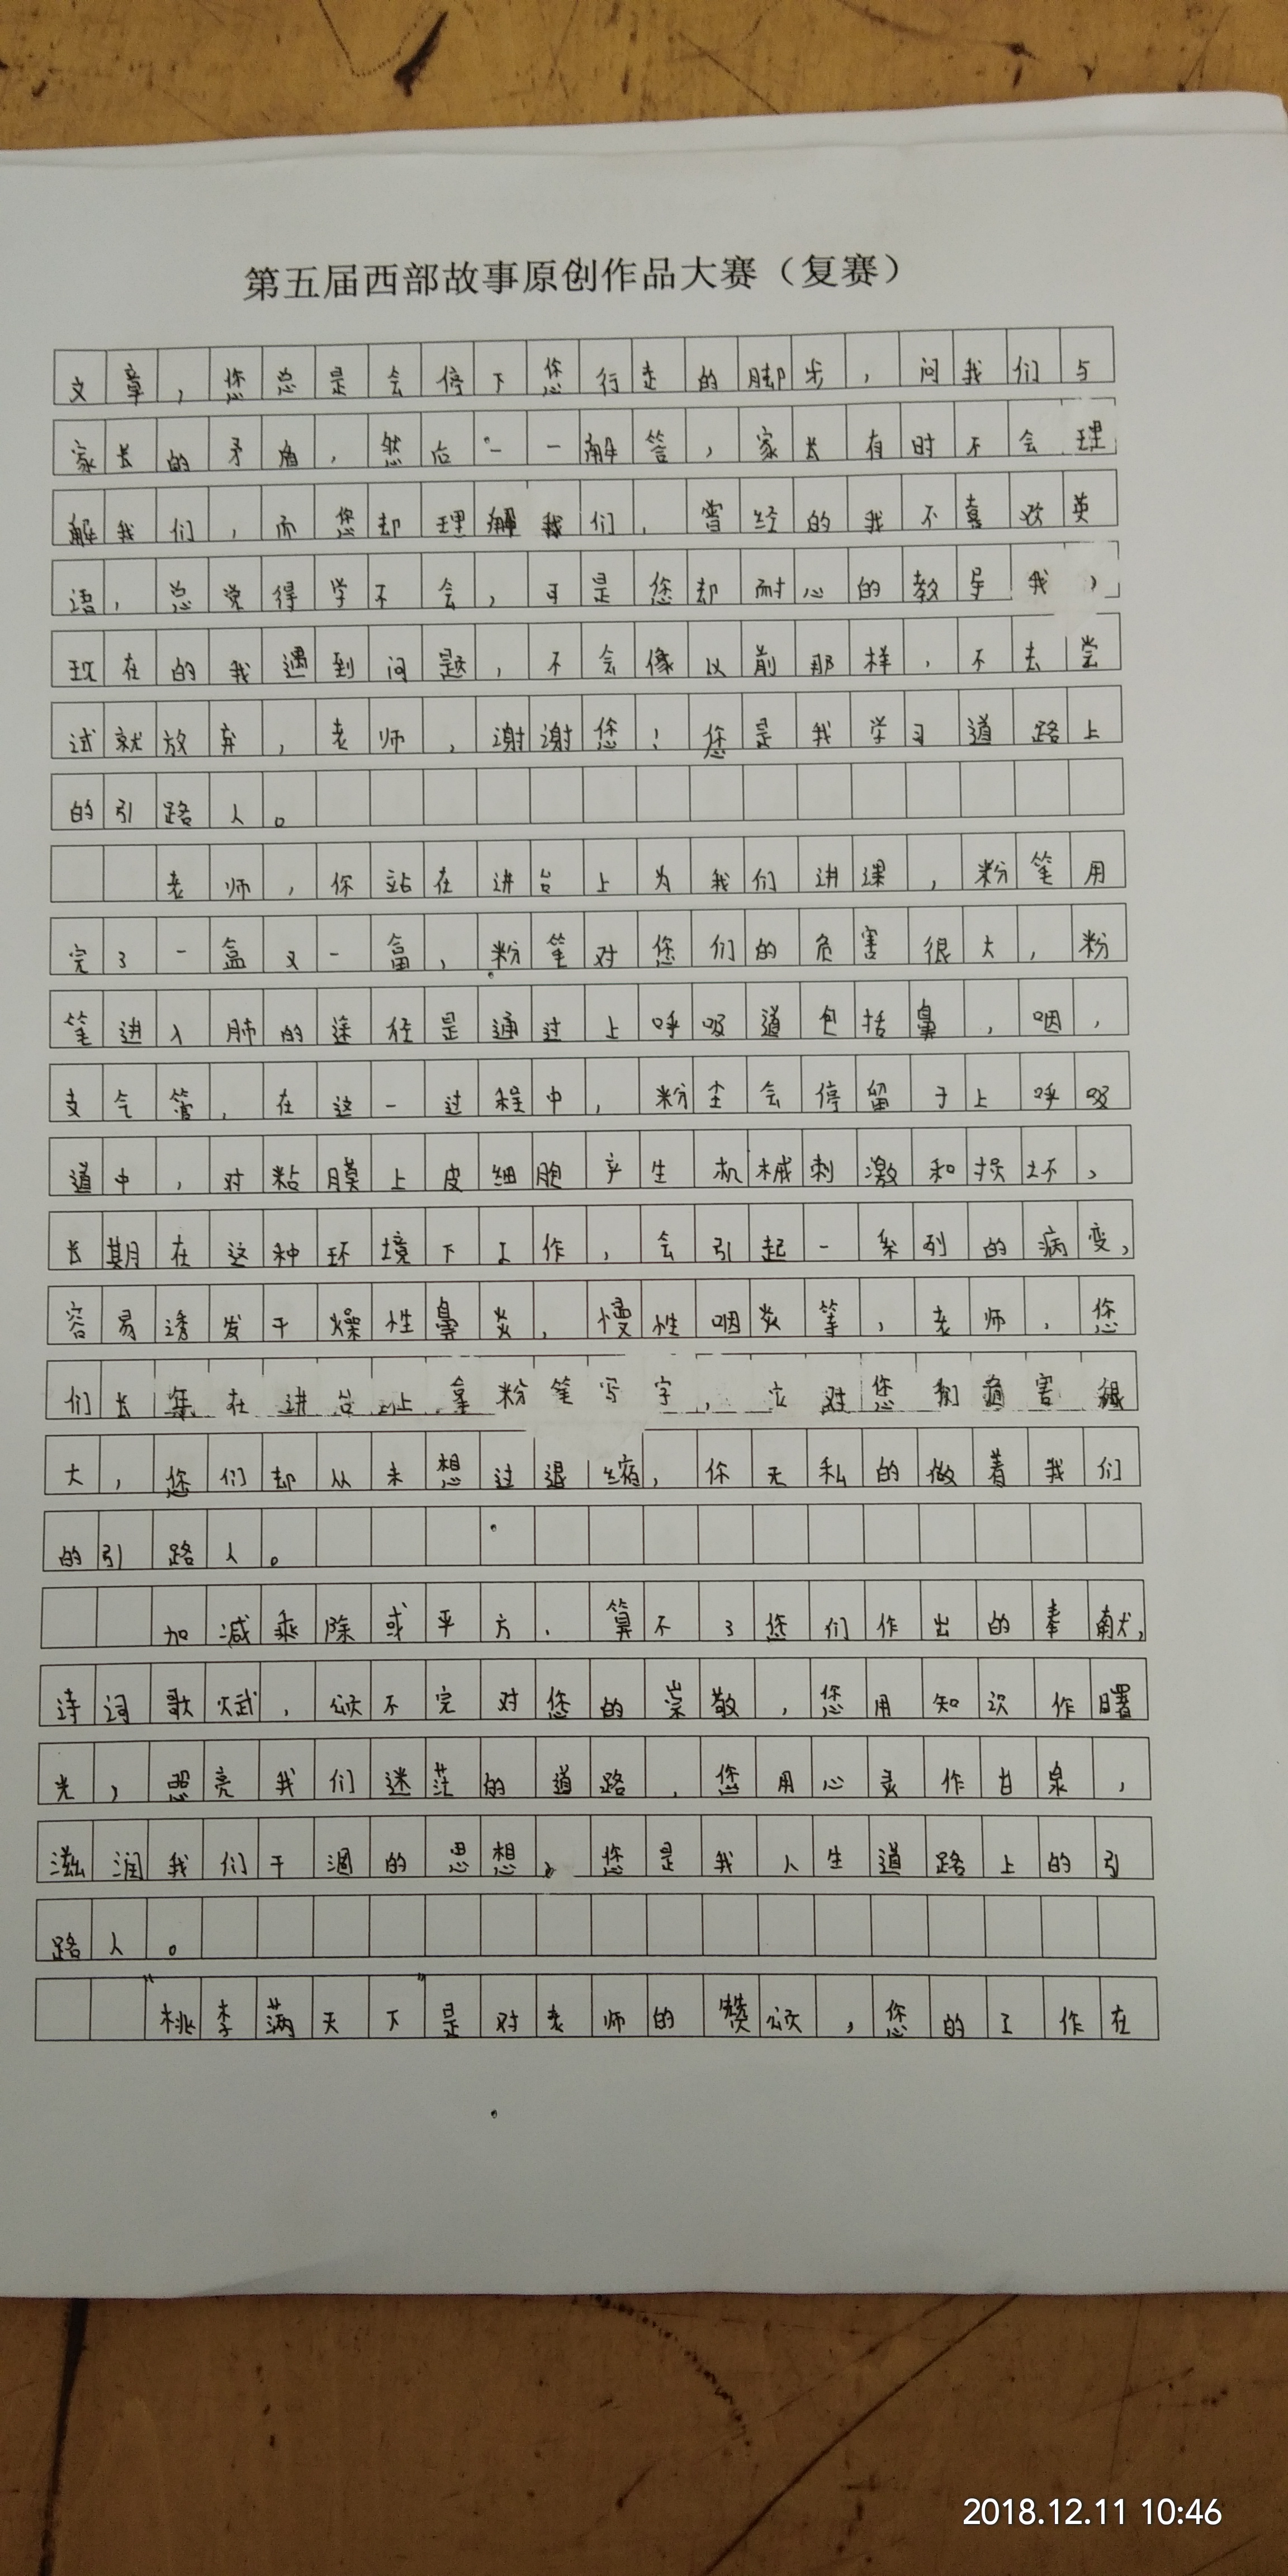 第五届西部故事原创作品大赛（复赛）
文章，您总是会停下您行走的脚步，问我们与
家长的矛盾，然后一一解答，家长有时不会理
解我们，而您却理解我们，曾经的我不喜欢英
语，总觉得学不会，可是您却耐心的教导我，
现在的我遇到问题，不会像以前那样，不去尝
试就放弃，老师，谢谢您！您是我学习道路上
的引路人。
老师，你站在讲台上为我们讲课，粉笔用
完了一盒又一盒，粉笔对您们的危害很大，粉
笔进入肺的途径是通过上呼吸道包括鼻，咽，
支气管，在这一过程中，粉尘会停留于上呼吸
道中，对粘膜上皮细胞产生机械刺激和损坏，
长期在这种环境下工作，会引起一系列的病变，
容易诱发干燥性鼻炎，慢性咽炎等，老师，您
们长年在讲台上拿粉笔写字，它对您们危害很
大，您们却从未想过退缩，你无私的做着我们
的引路人。
加减乘除或平方，算不了您们作出的奉献，
诗词歌赋，颂不完对您的崇敬，您用知识作曙
光，照亮我们迷茫的道路，您用心灵作甘泉，
滋润我们干涸的思想，您是我人生道路上的引
路人。
“桃李满天下”是对老师的赞颂，您的工作在
2018.12.11 10:46